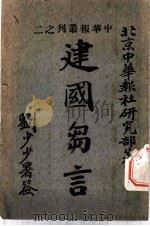 中華報叢刊之二
北京中華報社研究部
建國芻言
署簽